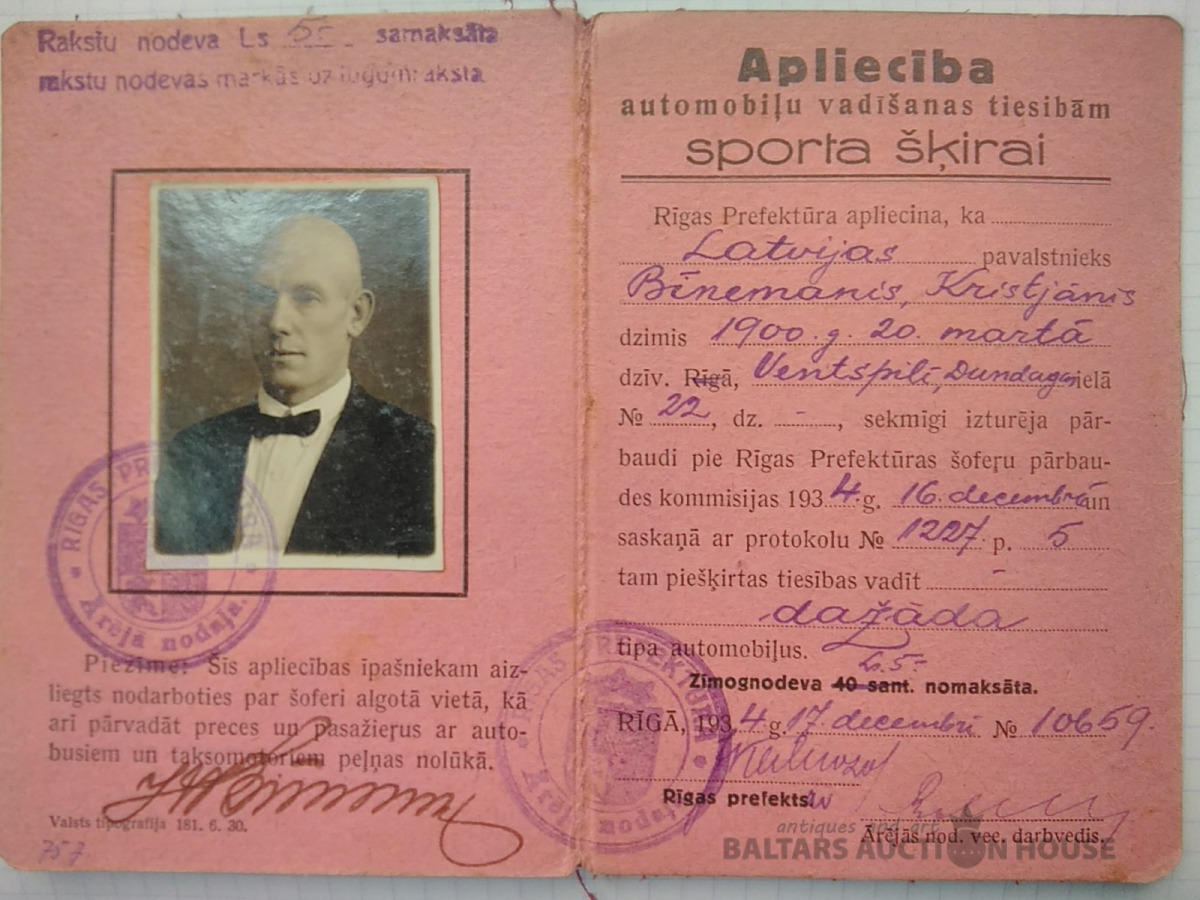 Rakstu nodeva Ls 5.- samaksāta
rakstu nodevas markās uz lūgumraksta
RĪGAS PREFEKTŪRA
Ārējā nodaļa.
Piezīme: Šīs apliecības īpašniekam aiz-
liegts nodarboties par šoferi algotā vietā, kā
arī pārvadāt preces un pasažieŗus ar auto-
busiem un taksomotoriem peļņas nolūkā.
Valsts tipografija 181. 6. 30.
757
Apliecība
automobiļu vadīšanas tiesibām
sporta šķirai
Rīgas Prefektūra apliecina, ka
Latvijas pavalstnieks
Bīnemanis, Kristjānis
dzimis 1900. g. 20. martā
dzīv. Rīgā, Ventspilī, Dundagas ielā
№ 22, dz. -, sekmīgi izturēja pār-
baudi pie Rīgas Prefektūras šofeŗu pārbau-
des kommisijas 1934. g. 16. decembrī un
saskaņā ar protokolu № 1227. p. 5
tam piešķirtas tiesības vadīt -
dažāda
tipa automobiļus.
Ls 5-
Zīmognodeva 40 sant. nomaksāta.
RĪGĀ, 1934. g 17. decembrī № 10659.
RĪGAS PREFEKTŪRA
Ārējā nodaļa
Rīgas prefekts
Ārējās nod. vec. darbvedis.
antiques and art
BALTARS AUCTION HOUSE